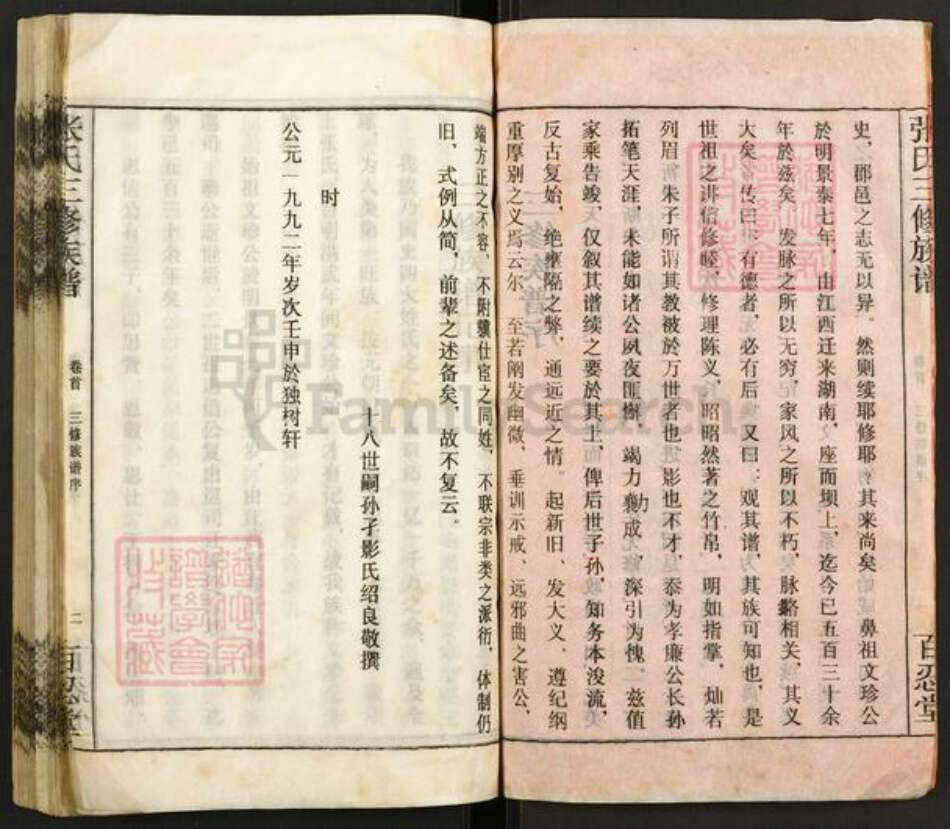 张氏三修族谱
百忍堂
史，郡邑之志无以异。然则续耶修耶？其来尚矣！鼻祖文珍公
於明景泰七年，由江西迁来湖南，座而坝上，迄今已五百三十余
年於兹矣，发脉之所以无穷，家风之所以不朽，脉络相关，其义
大矣！传曰：有德者，必有后，又曰：观其谱，其族可知也，是
世祖之讲信修睦，修理陈义，昭昭然著之竹帛，明如指掌，灿若
列眉，朱子所谓其教被於万世者也，影也不才，忝为孝廉公长孙
拓笔天涯，未能如诸公夙夜匪懈，竭力襄成，深引为愧，兹值
家乘告竣，仅叙其谱续之要於其上，俾后世子孙，知务本浚流，
反古复始，绝壅隔之弊，通远近之情。起新旧、发大义、遵纪纲
重厚别之义焉云尔。至若阐发幽微、垂训示戒、远邪曲之害公，
端方正之不容，不附骥仕宦之同姓，不联宗非类之派衍，体制仍
旧，式例从简，前辈之述备矣，故不复云。
十八世嗣孙子影氏绍良敬撰
时
公元一九九二年岁次壬申於独树轩
张氏三修族谱
卷首
三修族谱序
二
百忍堂
FamilySearch